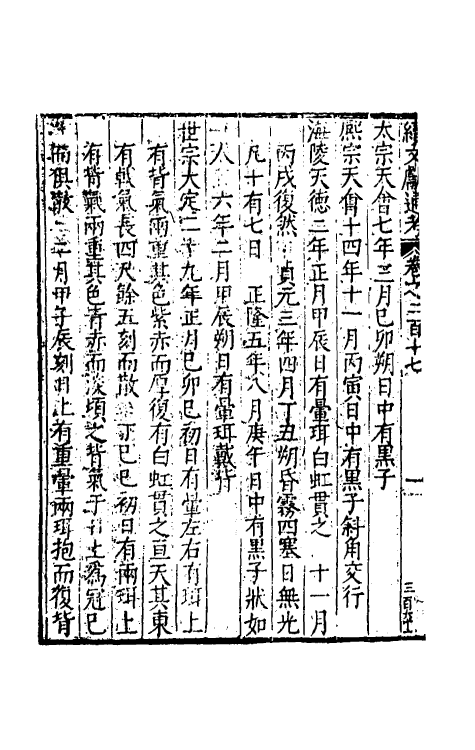 續文獻通考 卷之二百十七 一
太宗天會七年三月己卯朔日中有黑子
熙宗天會十四年十一月丙寅日中有黑子斜角交行
海陵天德二年正月甲辰日有暈珥白虹貫之 十一月
丙戌復然 貞元三年四月丁丑朔昏霧四塞日無光
凡十有七日 正隆五年八月庚午日中有黑子狀如
人 六年二月甲辰朔日有暈珥戴背
世宗大定二十九年正月己卯巳初日有暈左右有珥上
有背氣兩重其色紫赤而厚復有白虹貫之亘天其東
有戟氣長四尺餘五刻而散 丁巳巳初日有兩珥上
有背氣兩重其色青赤而淡頃之背氣于日上為冠已
而俱散 二月甲子辰刻日上有重暈兩珥抱而復背